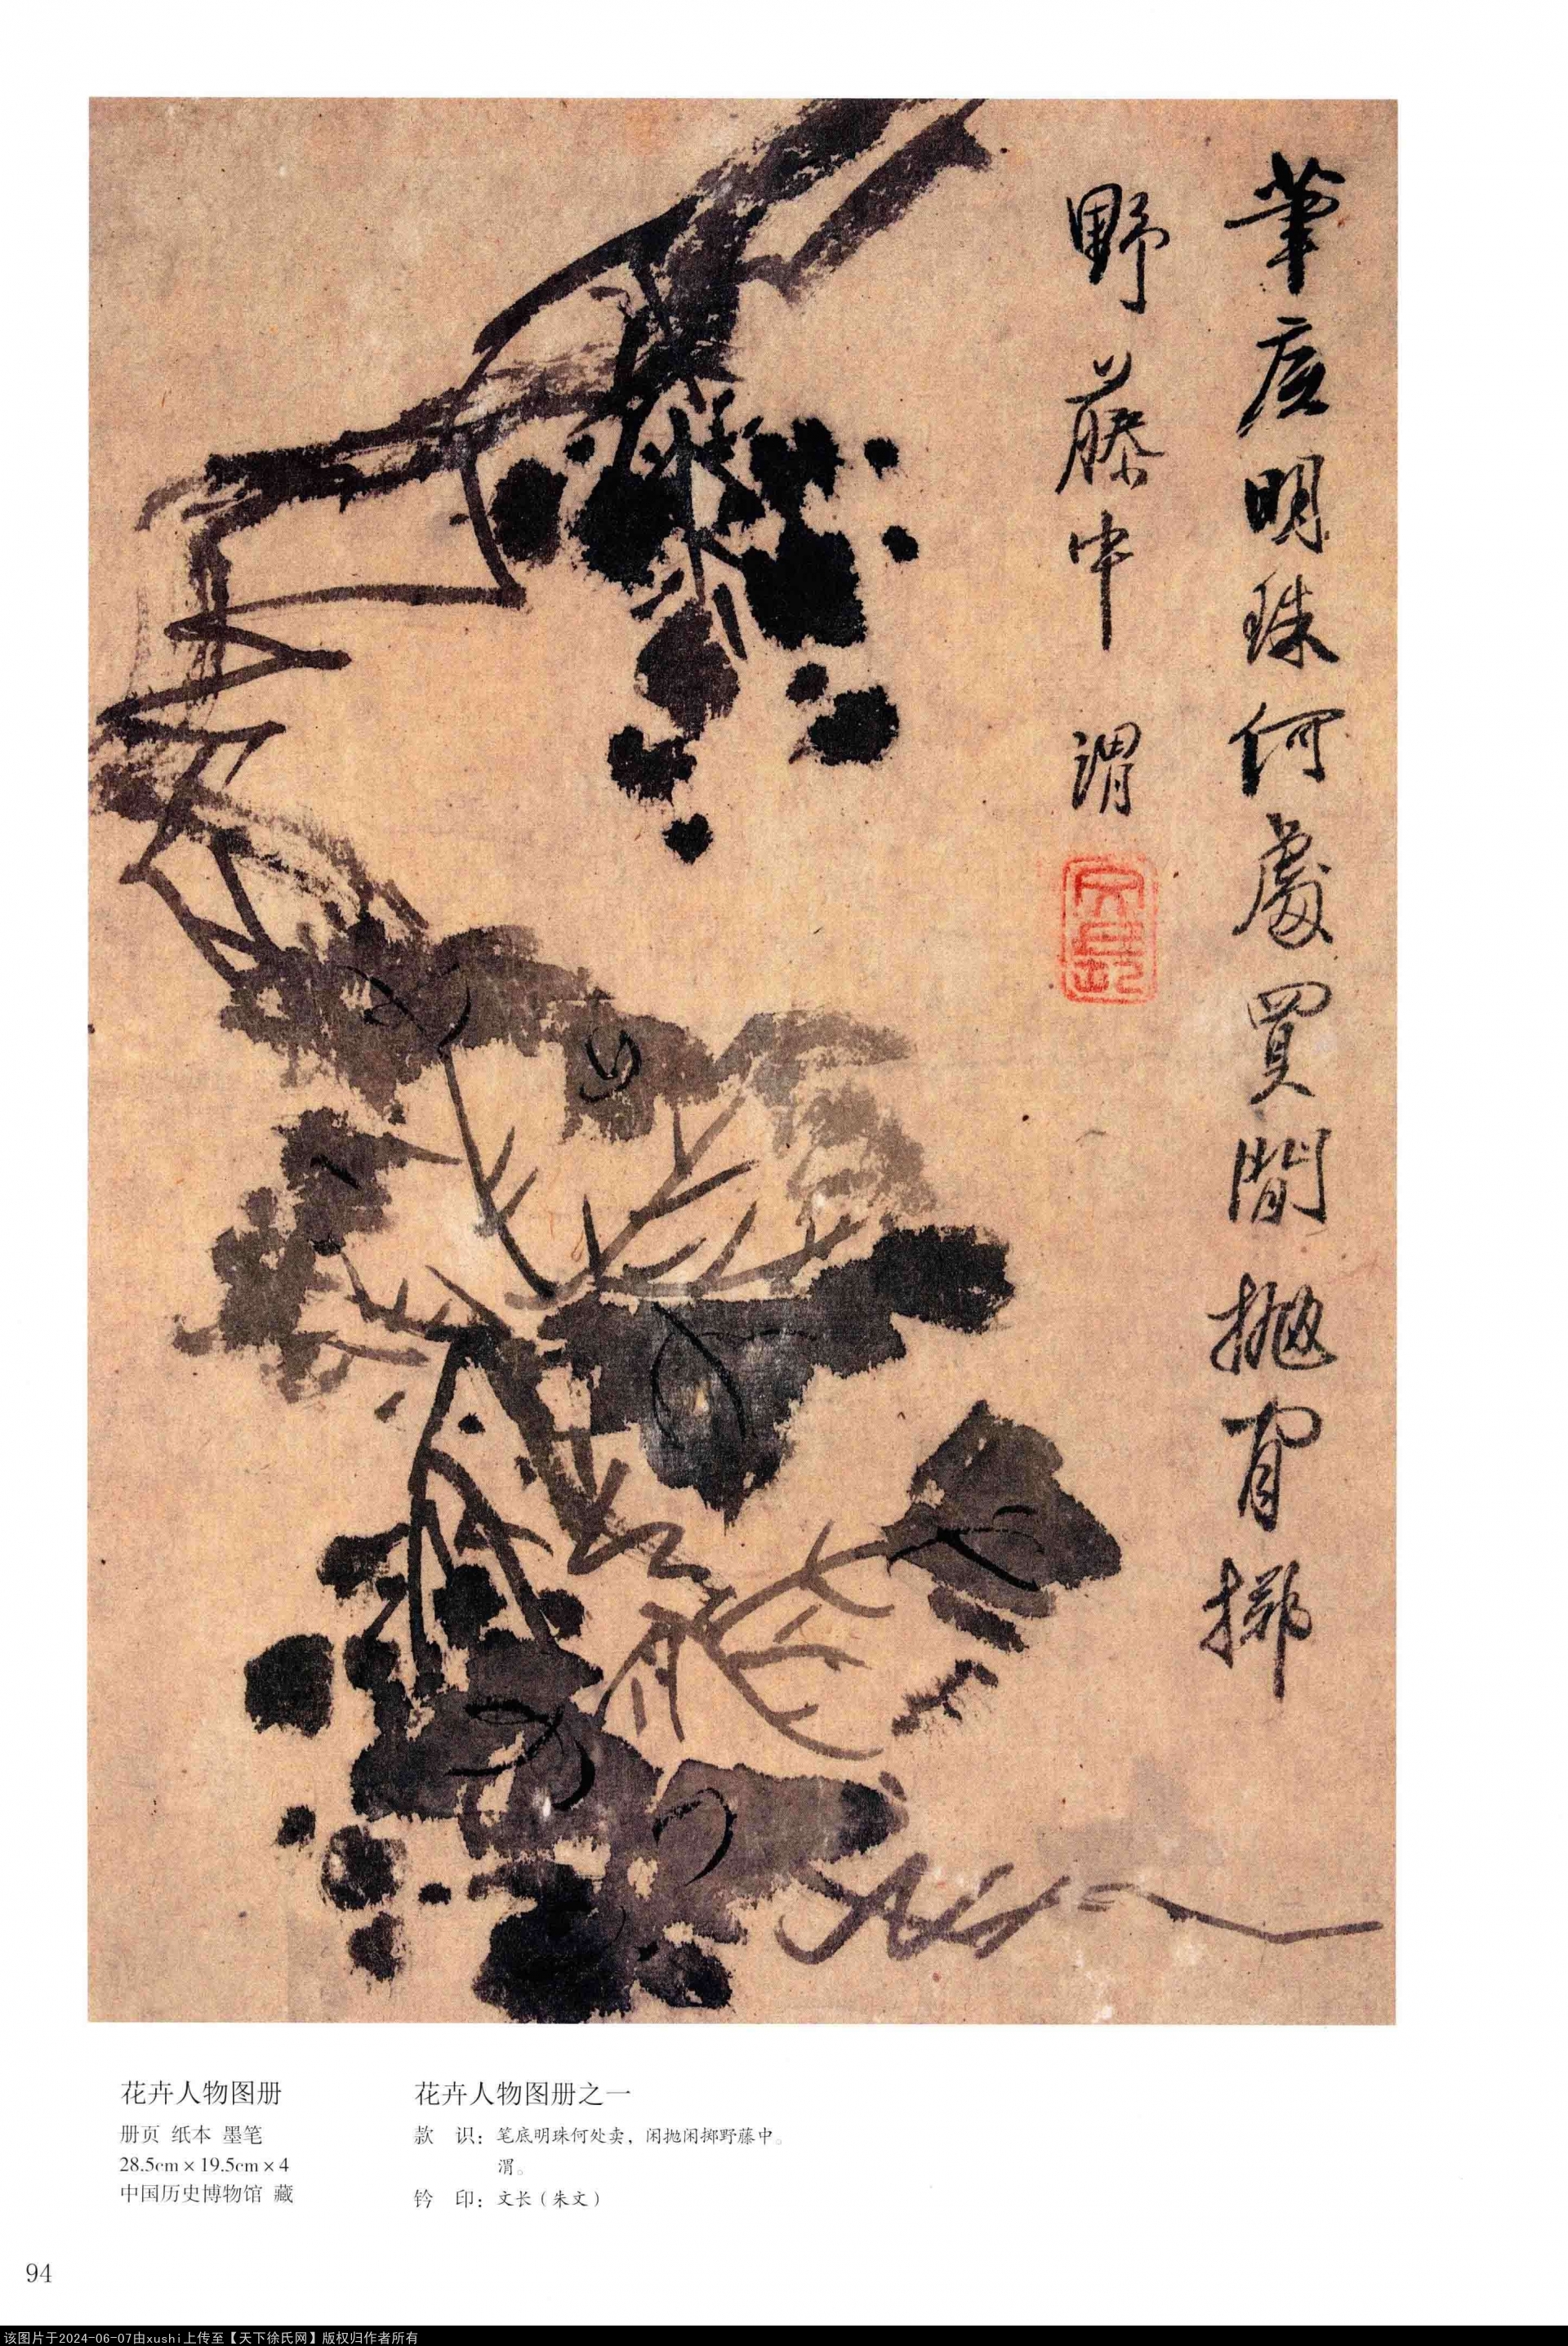 筆底明珠何處買閒抛閒擲
野藤中 渭
花卉人物图册
册页 纸本 墨笔
28.5cm×19.5cm×4
中国历史博物馆 藏
花卉人物图册之一
款 识：笔底明珠何处卖，闲抛闲掷野藤中。
渭。
钤 印：文长（朱文）
94
该图片于2024-06-07由xushi上传至【天下徐氏网】版权归作者所有